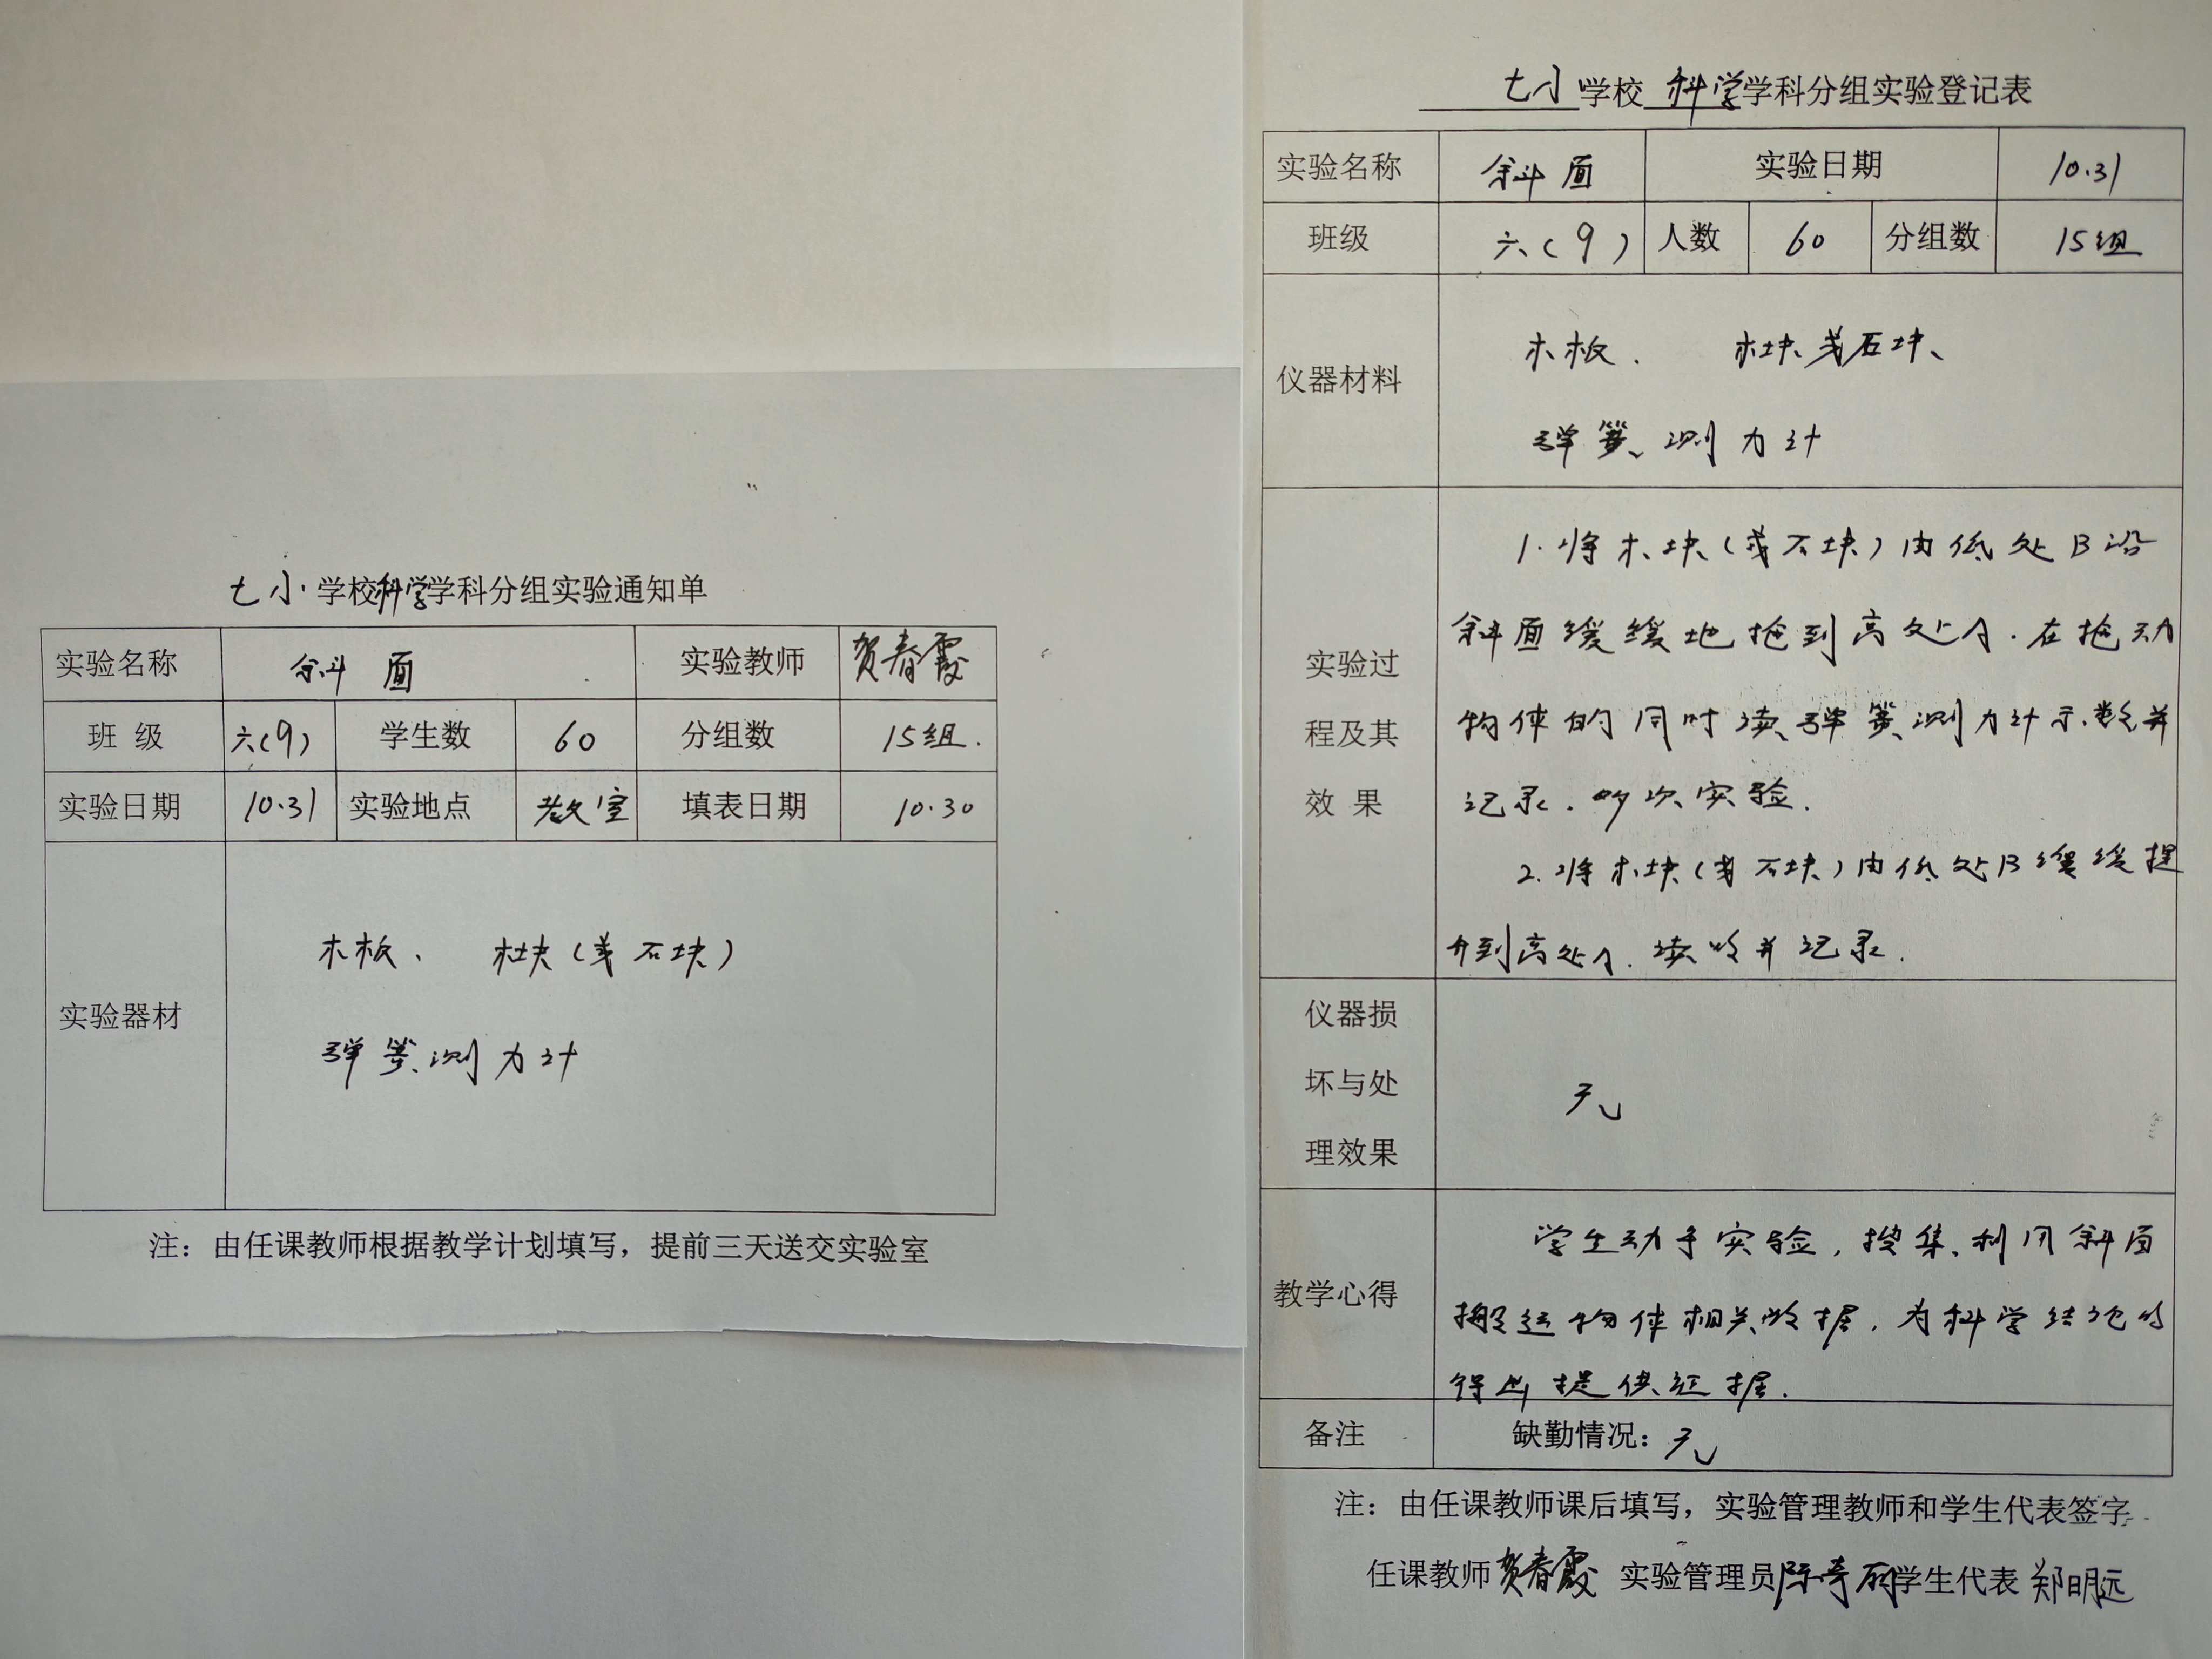 七小学校科学学科分组实验通知单
实验名称 斜面 实验教师 贺春霞
班级 六(9) 学生数 60 分组数 15组.
实验日期 10.31 实验地点 教室 填表日期 10.30
实验器材
木板、 木块(或石块)
弹簧测力计
注：由任课教师根据教学计划填写，提前三天送交实验室
七小学校科学学科分组实验登记表
实验名称 斜面 实验日期 10.31
班级 六(9) 人数 60 分组数 15组
仪器材料
木板. 木块或石块、
弹簧测力计
实验过程及其效果
1.将木块(或石块)由低处B沿
斜面缓缓地拖到高处A.在拖动
物体的同时读弹簧测力计示数并
记录.多次实验.
2.将木块(或石块)由低处B缓缓提
升到高处A.读数并记录.
仪器损坏与处理效果
无
教学心得
学生动手实验,搜集利用斜面
搬运物体相关数据,为科学结论的
得出提供证据.
备注 缺勤情况：无
注：由任课教师课后填写，实验管理教师和学生代表签字
任课教师贺春霞 实验管理员陈奇丽学生代表 郑明远